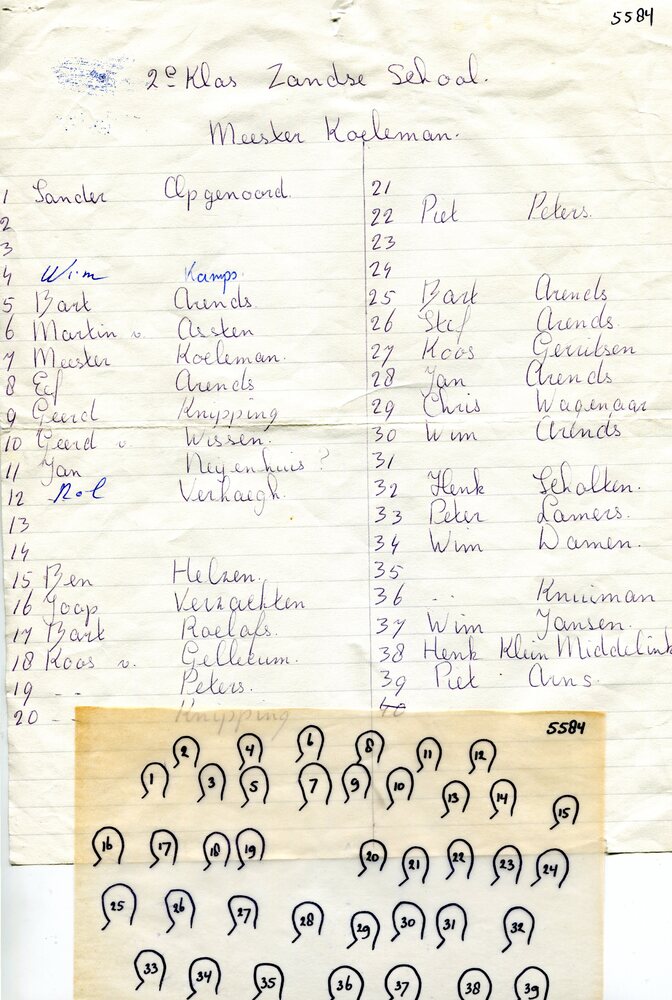 5584
2e Klas Zandse School.
Meester Koeleman.
1 Sander Opgenoord.
2
3
4 Wim Kamps.
5 Bart Arends
6 Martin v. Assten
7 Meester Koeleman.
8 Eef Arends
9 Geerd Knipping
10 Geerd v. Wissen.
11 Jan Neyenhuis ?
12 Rol Verhaegh.
13
14
15 Ben Helzen.
16 Joop
17 Bart Roelofs.
18 Koos v. Gelleeum.
19 -- Peters.
20 -- Knipping
21
22 Piet Peters.
23
24
25 Bart Arends
26 Stef Arends.
27 Koos Gerritsen
28 Jan Arends
29 Chris Wagenaar
30 Wim Arends
31
32 Henk Scholten.
33 Peter Lamers.
34 Wim Damen.
35
36 -- Kniiman
37 Wim Jansen.
38 Henk Klein Middelink
39 Piet Arns.
40
5584
2 4 6 8 11 12
1 3 5 7 9 10 13 14 15
16 17 18 19 20 21 22 23 24
25 26 27 28 29 30 31 32
33 34 35 36 37 38 39